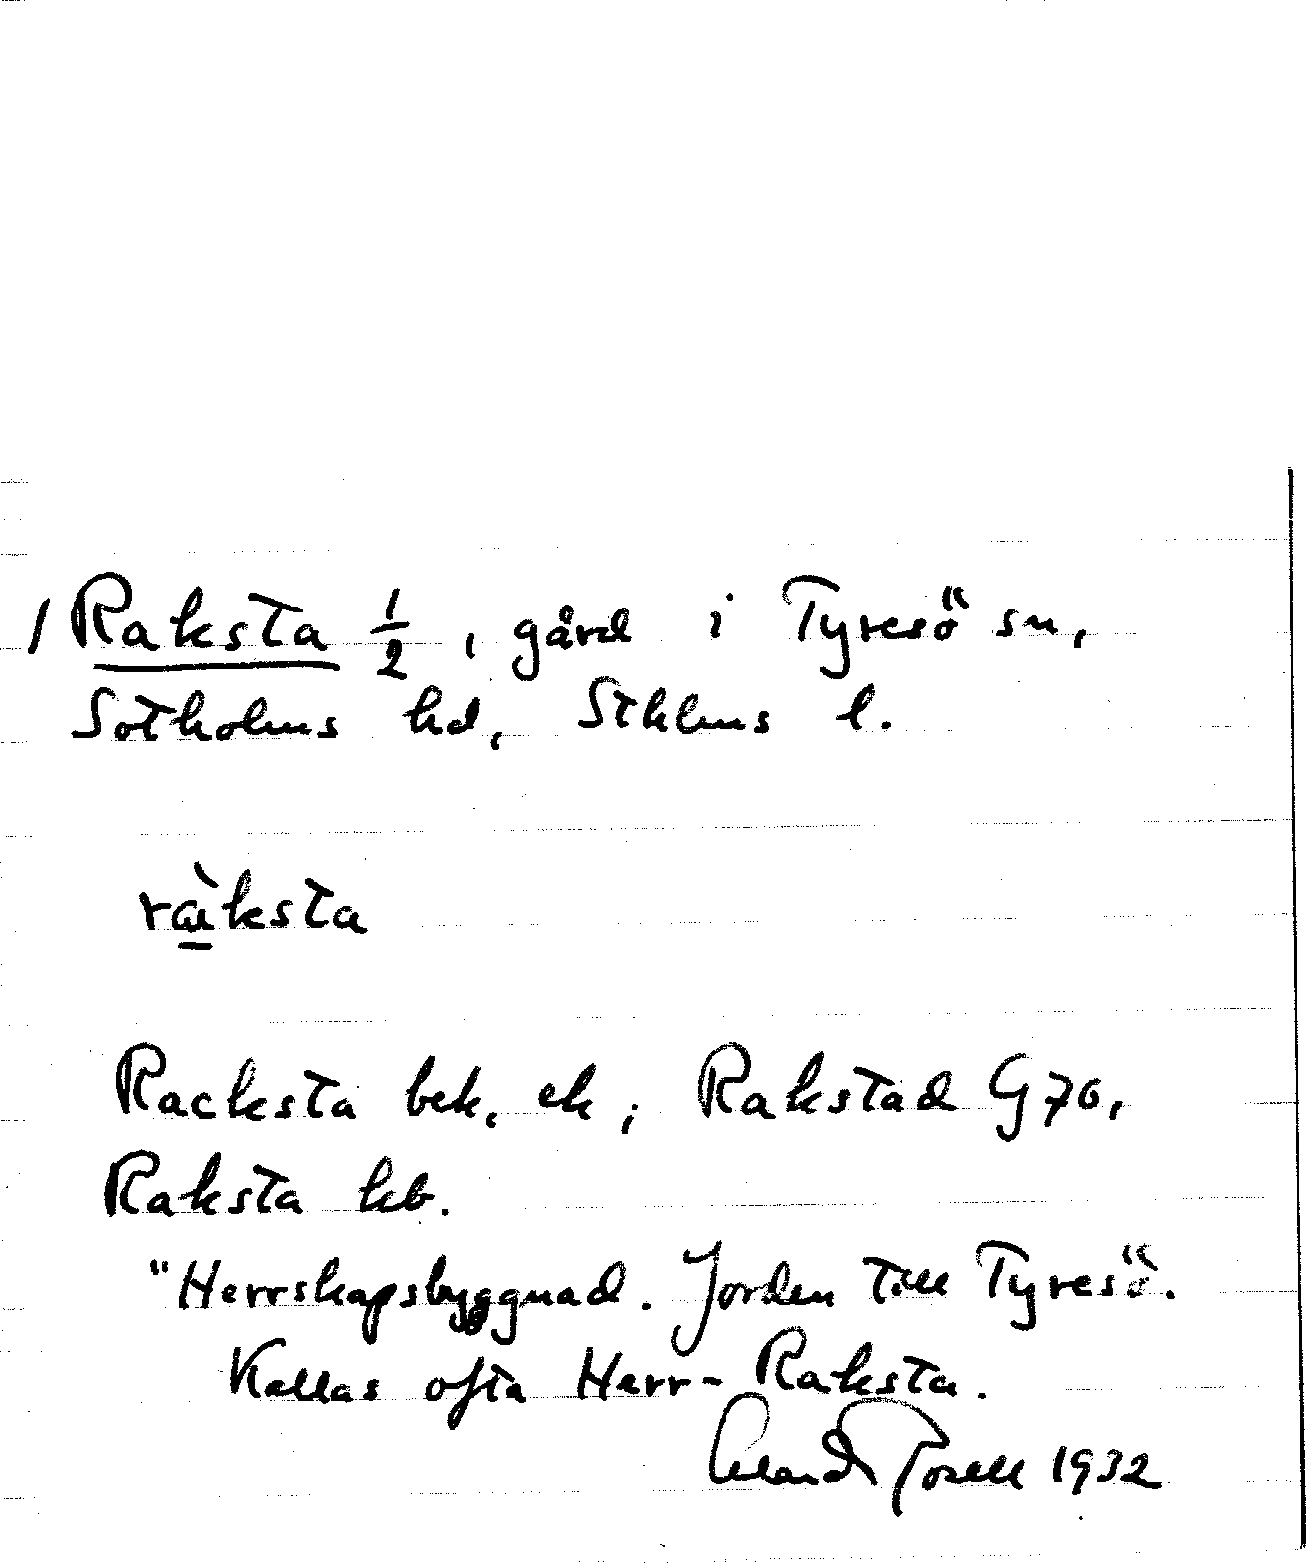 / Raksta 1/2, gård i Tyresö sn,
Sotholms hd, Sthlms l.
ràksta
Racksta bek. ek; Rakstad G70,
Raksta kb.
"Herrskapsbyggnad. Jorden till Tyresö.
Kallas ofta Herr-Raksta.
1932